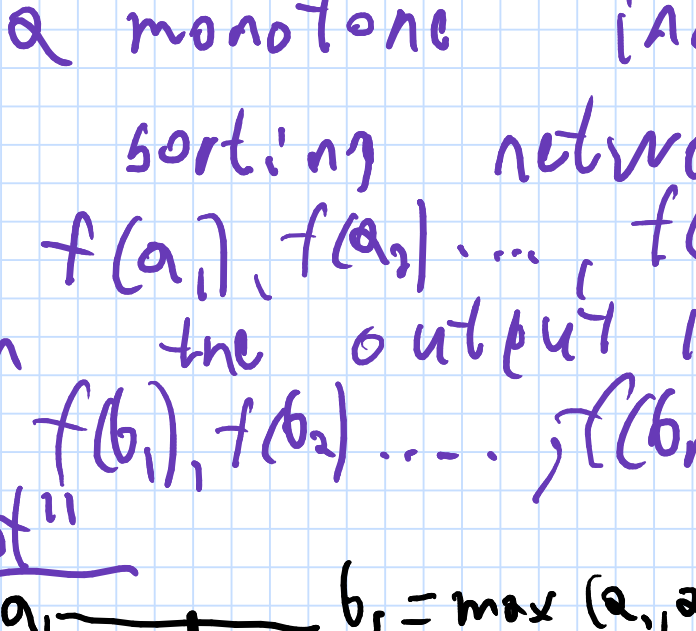 a monotone in
sorting netwo
f(a₁), f(a₂) ...., f(
n the output
f(b₁), f(b₂) ....., f(bₙ
t"
a₁ b₁ = max (a₁, a